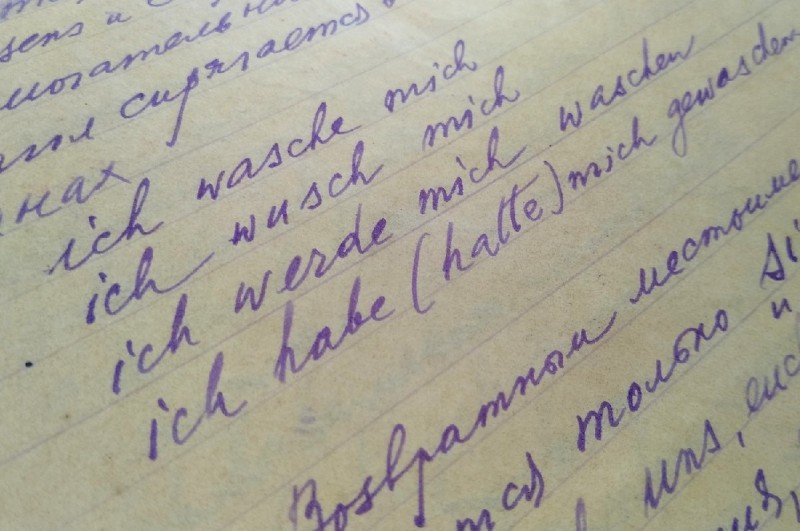 спрягается
нах
ich wasche mich
ich wusch mich
ich werde mich waschen
ich habe (hatte) mich gewaschen
Возвратным местоиме
тся только si
uns, euc